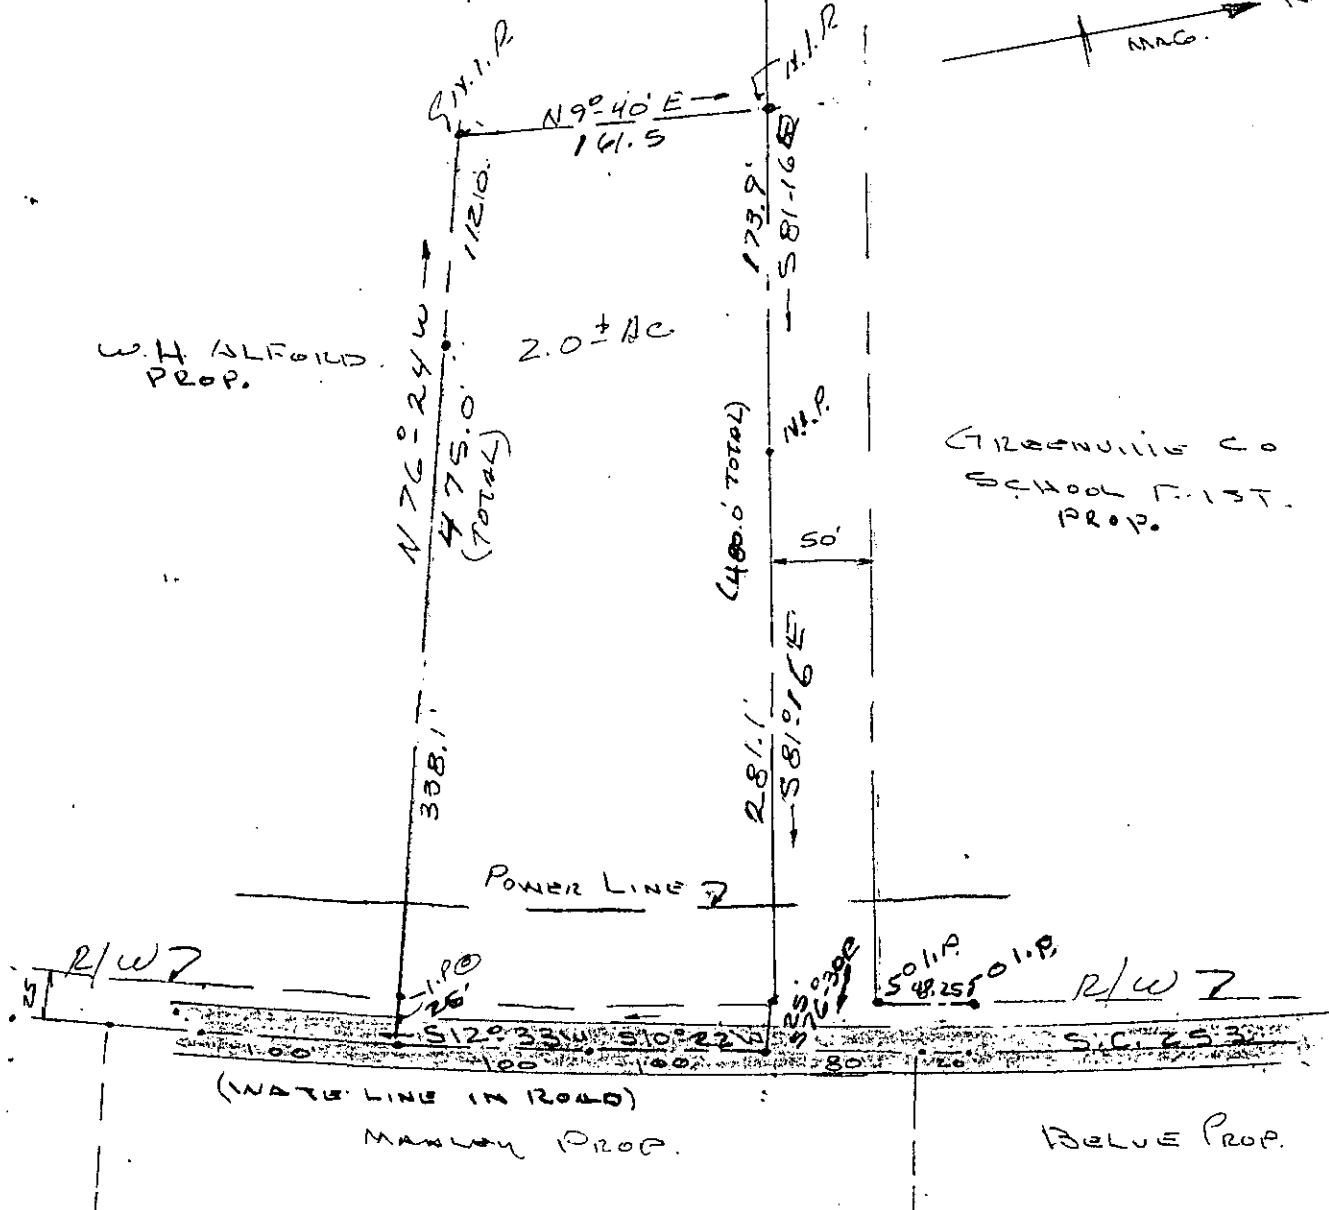 N.I.P.
N.I.P.
MAG.
N 9°-40' E
161.5
112.0
173.9'
S 81-16 E
W.H. ALFORD
PROP.
2.0 ± AC
N 76°-24 W
475.0
(TOTAL)
(480.0' TOTAL)
N.I.P.
GREENVILLE CO
SCHOOL DIST.
PROP.
50'
338.1'
281.1'
S 81°-16 E
POWER LINE
R/W
25
I.P.O
25'
25'
S 76°-30 E
O I.P.
48.25
O I.P.
R/W
S 12°-33 W
S 10°-22 W
S.C. 253
100
100
100
80
20
(WATER LINE IN ROAD)
MANLEY PROP.
BELUE PROP.